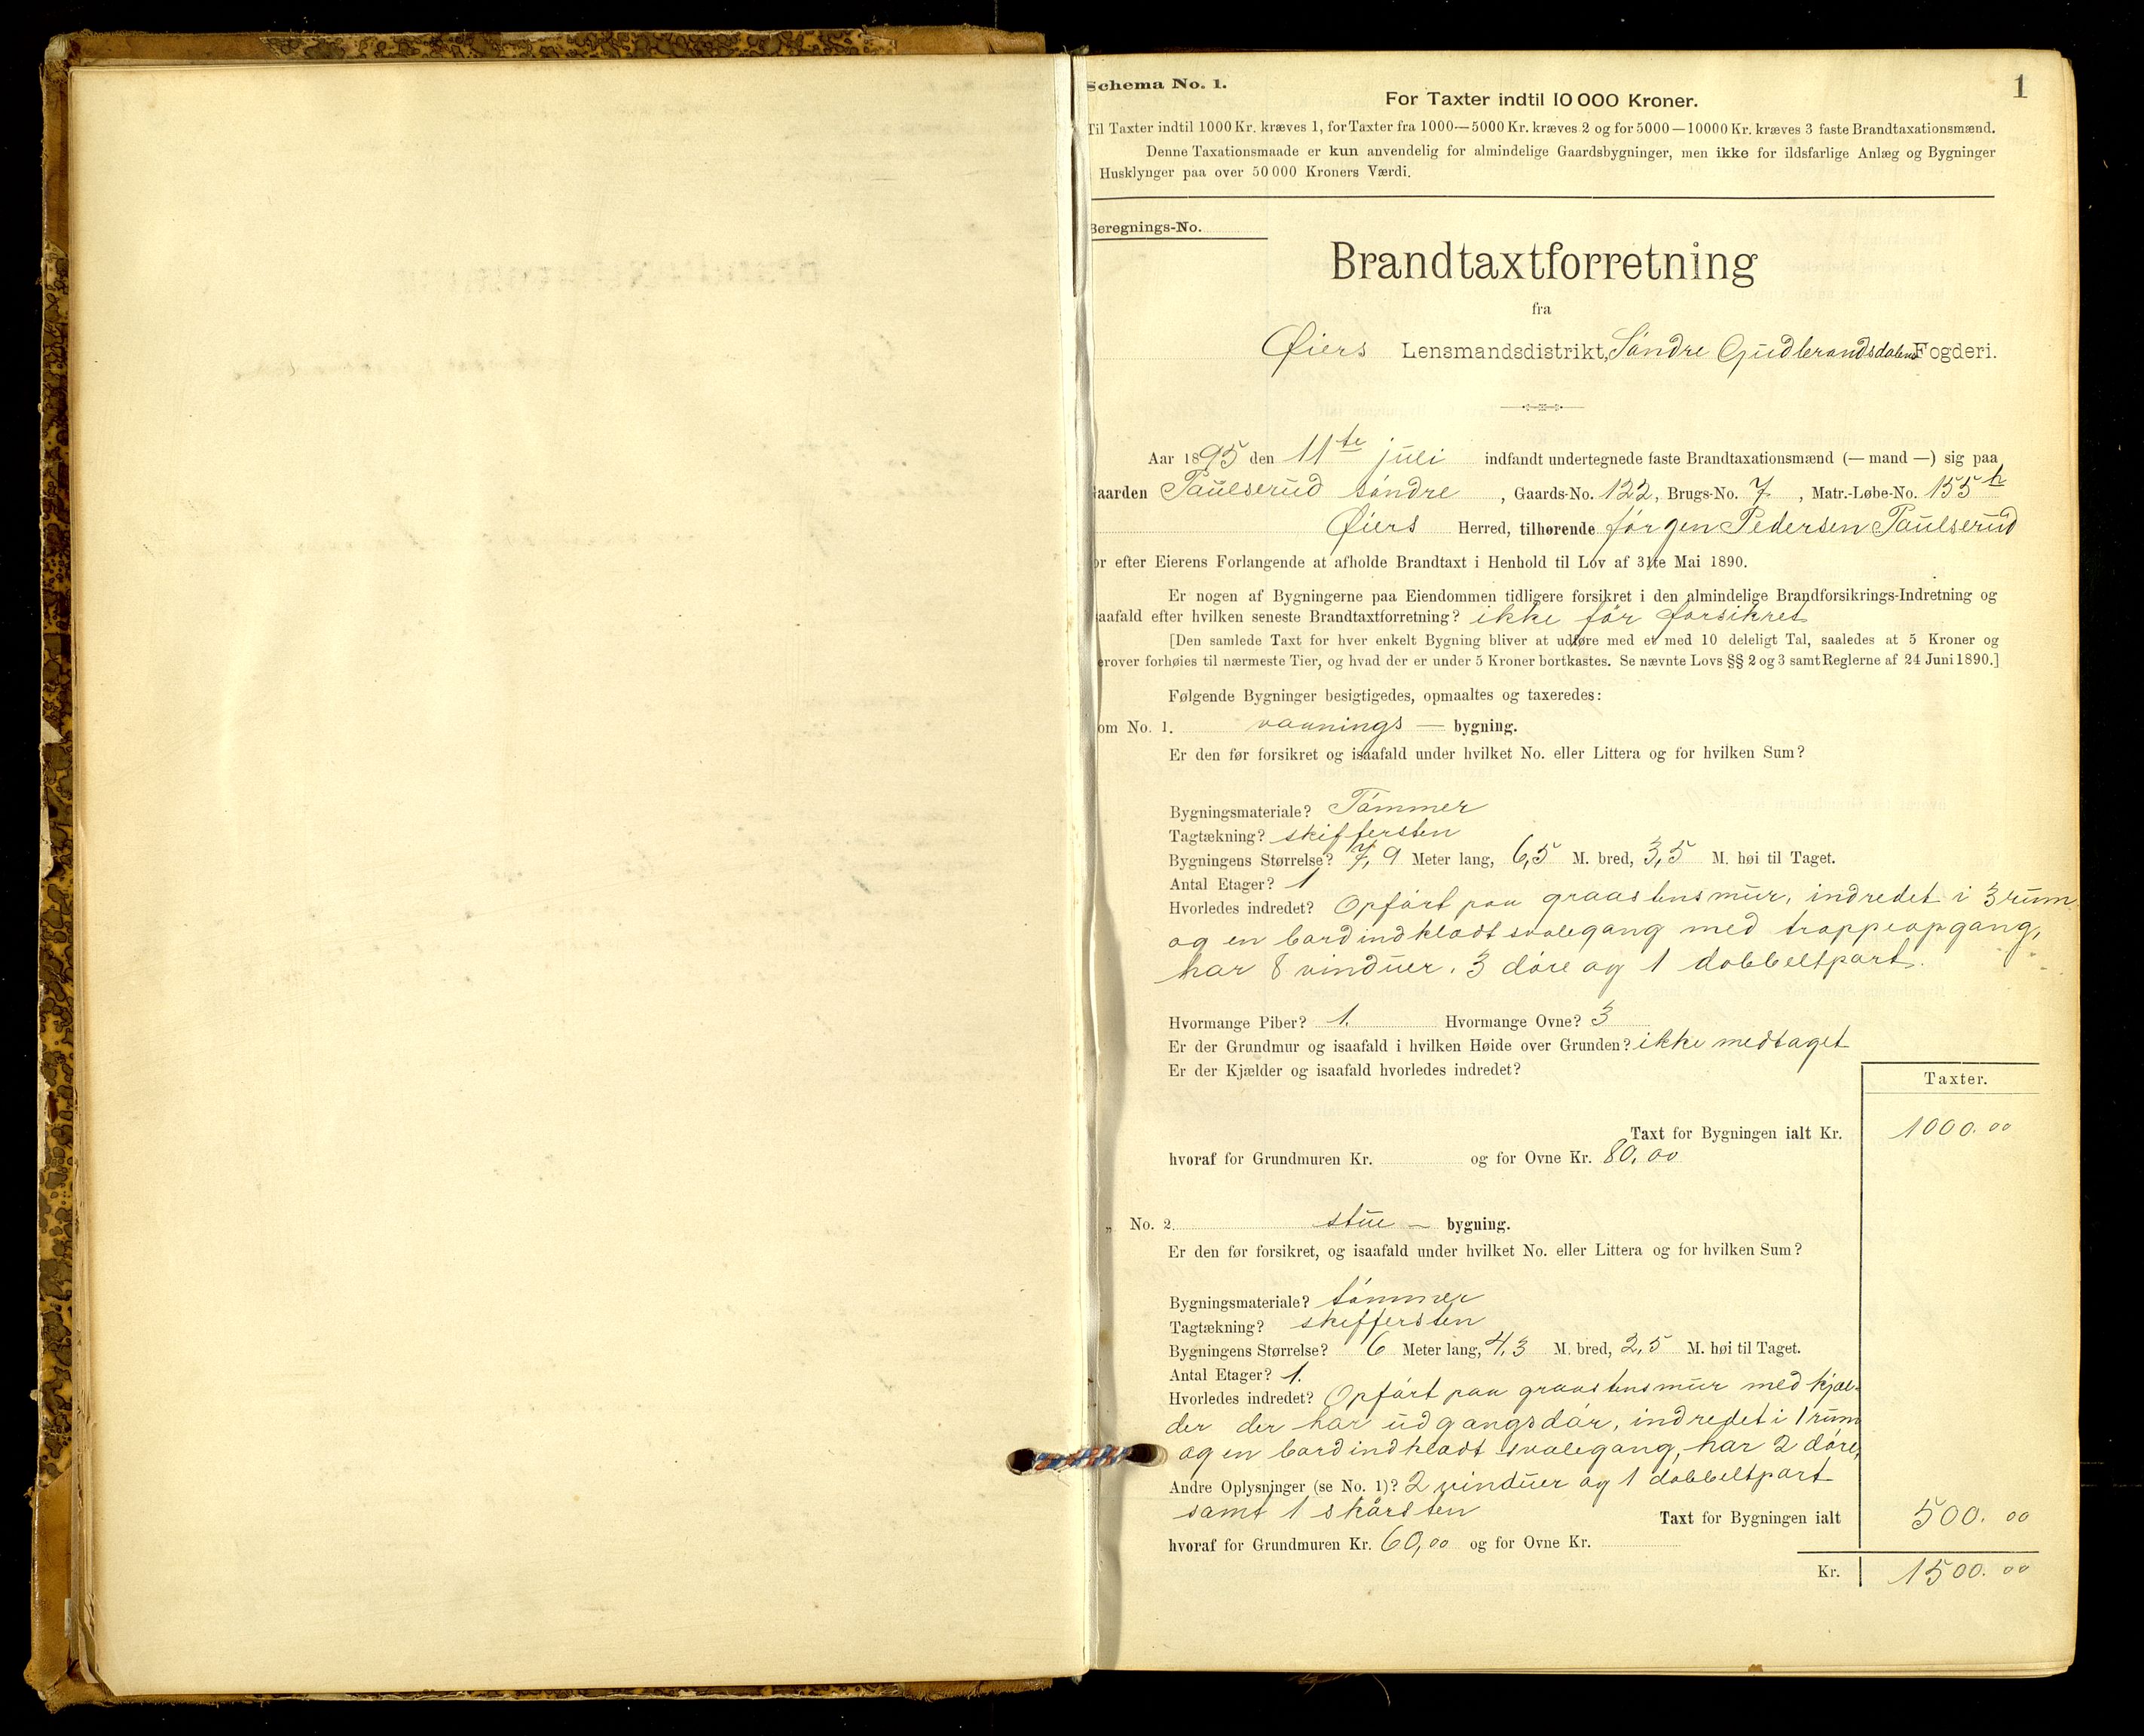 Schema No. 1.
1
For Taxter indtil 10 000 Kroner.
Til Taxter indtil 1000 Kr. kræves 1, for Taxter fra 1000—5000 Kr. kræves 2 og for 5000—10000 Kr. kræves 3 faste Brandtaxationsmænd.
Denne Taxationsmaade er kun anvendelig for almindelige Gaardsbygninger, men ikke for ildsfarlige Anlæg og Bygninger
Husklynger paa over 50 000 Kroners Værdi.
Beregnings-No.
Brandtaxtforretning
fra
Øiers Lensmandsdistrikt, Söndre Gudbrandsdalens Fogderi.
Aar 1895 den 11te juli indfandt undertegnede faste Brandtaxationsmænd (— mand —) sig paa
aarden Paulserud söndre, Gaards-No. 122, Brugs-No. 7, Matr.-Løbe-No. 155h
Øiers Herred, tilhørende Jörgen Pedersen Paulserud
or efter Eierens Forlangende at afholde Brandtaxt i Henhold til Lov af 31te Mai 1890.
Er nogen af Bygningerne paa Eiendommen tidligere forsikret i den almindelige Brandforsikrings-Indretning og
aafald efter hvilken seneste Brandtaxtforretning? ikke för forsikret
[Den samlede Taxt for hver enkelt Bygning bliver at udføre med et med 10 deleligt Tal, saaledes at 5 Kroner og
erover forhøies til nærmeste Tier, og hvad der er under 5 Kroner bortkastes. Se nævnte Lovs §§ 2 og 3 samt Reglerne af 24 Juni 1890.]
Følgende Bygninger besigtigedes, opmaaltes og taxeredes:
om No. 1. vaanings — bygning.
Er den før forsikret og isaafald under hvilket No. eller Littera og for hvilken Sum?
Bygningsmateriale? Tömmer
Tagtækning? skiffersten
Bygningens Størrelse? 7,9 Meter lang, 6,5 M. bred, 3,5 M. høi til Taget.
Antal Etager? 1
Hvorledes indredet? Opfört paa graastensmur, indredet i 3 rum
og en bordindklædt svalegang med trappeopgang,
har 8 vinduer, 3 döre og 1 dobbeltport.
Hvormange Piber? 1. Hvormange Ovne? 3
Er der Grundmur og isaafald i hvilken Høide over Grunden? ikke medtaget
Er der Kjælder og isaafald hvorledes indredet?
Taxter.
Taxt for Bygningen ialt Kr. 1000.00
hvoraf for Grundmuren Kr. og for Ovne Kr. 80,00
„ No. 2. stue — bygning.
Er den før forsikret, og isaafald under hvilket No. eller Littera og for hvilken Sum?
Bygningsmateriale? tömmer
Tagtækning? skiffersten
Bygningens Størrelse? 6 Meter lang, 4,3 M. bred, 2,5 M. høi til Taget.
Antal Etager? 1.
Hvorledes indredet? Opfört paa graastensmur med kjæl-
der der har udgangsdör, indredet i 1 rum
og en bordindklædt svalegang, har 2 döre,
Andre Oplysninger (se No. 1)? 2 vinduer og 1 dobbeltport
samt 1 skörsten Taxt for Bygningen ialt 500.00
hvoraf for Grundmuren Kr. 60,00 og for Ovne Kr.
Kr. 1500.00